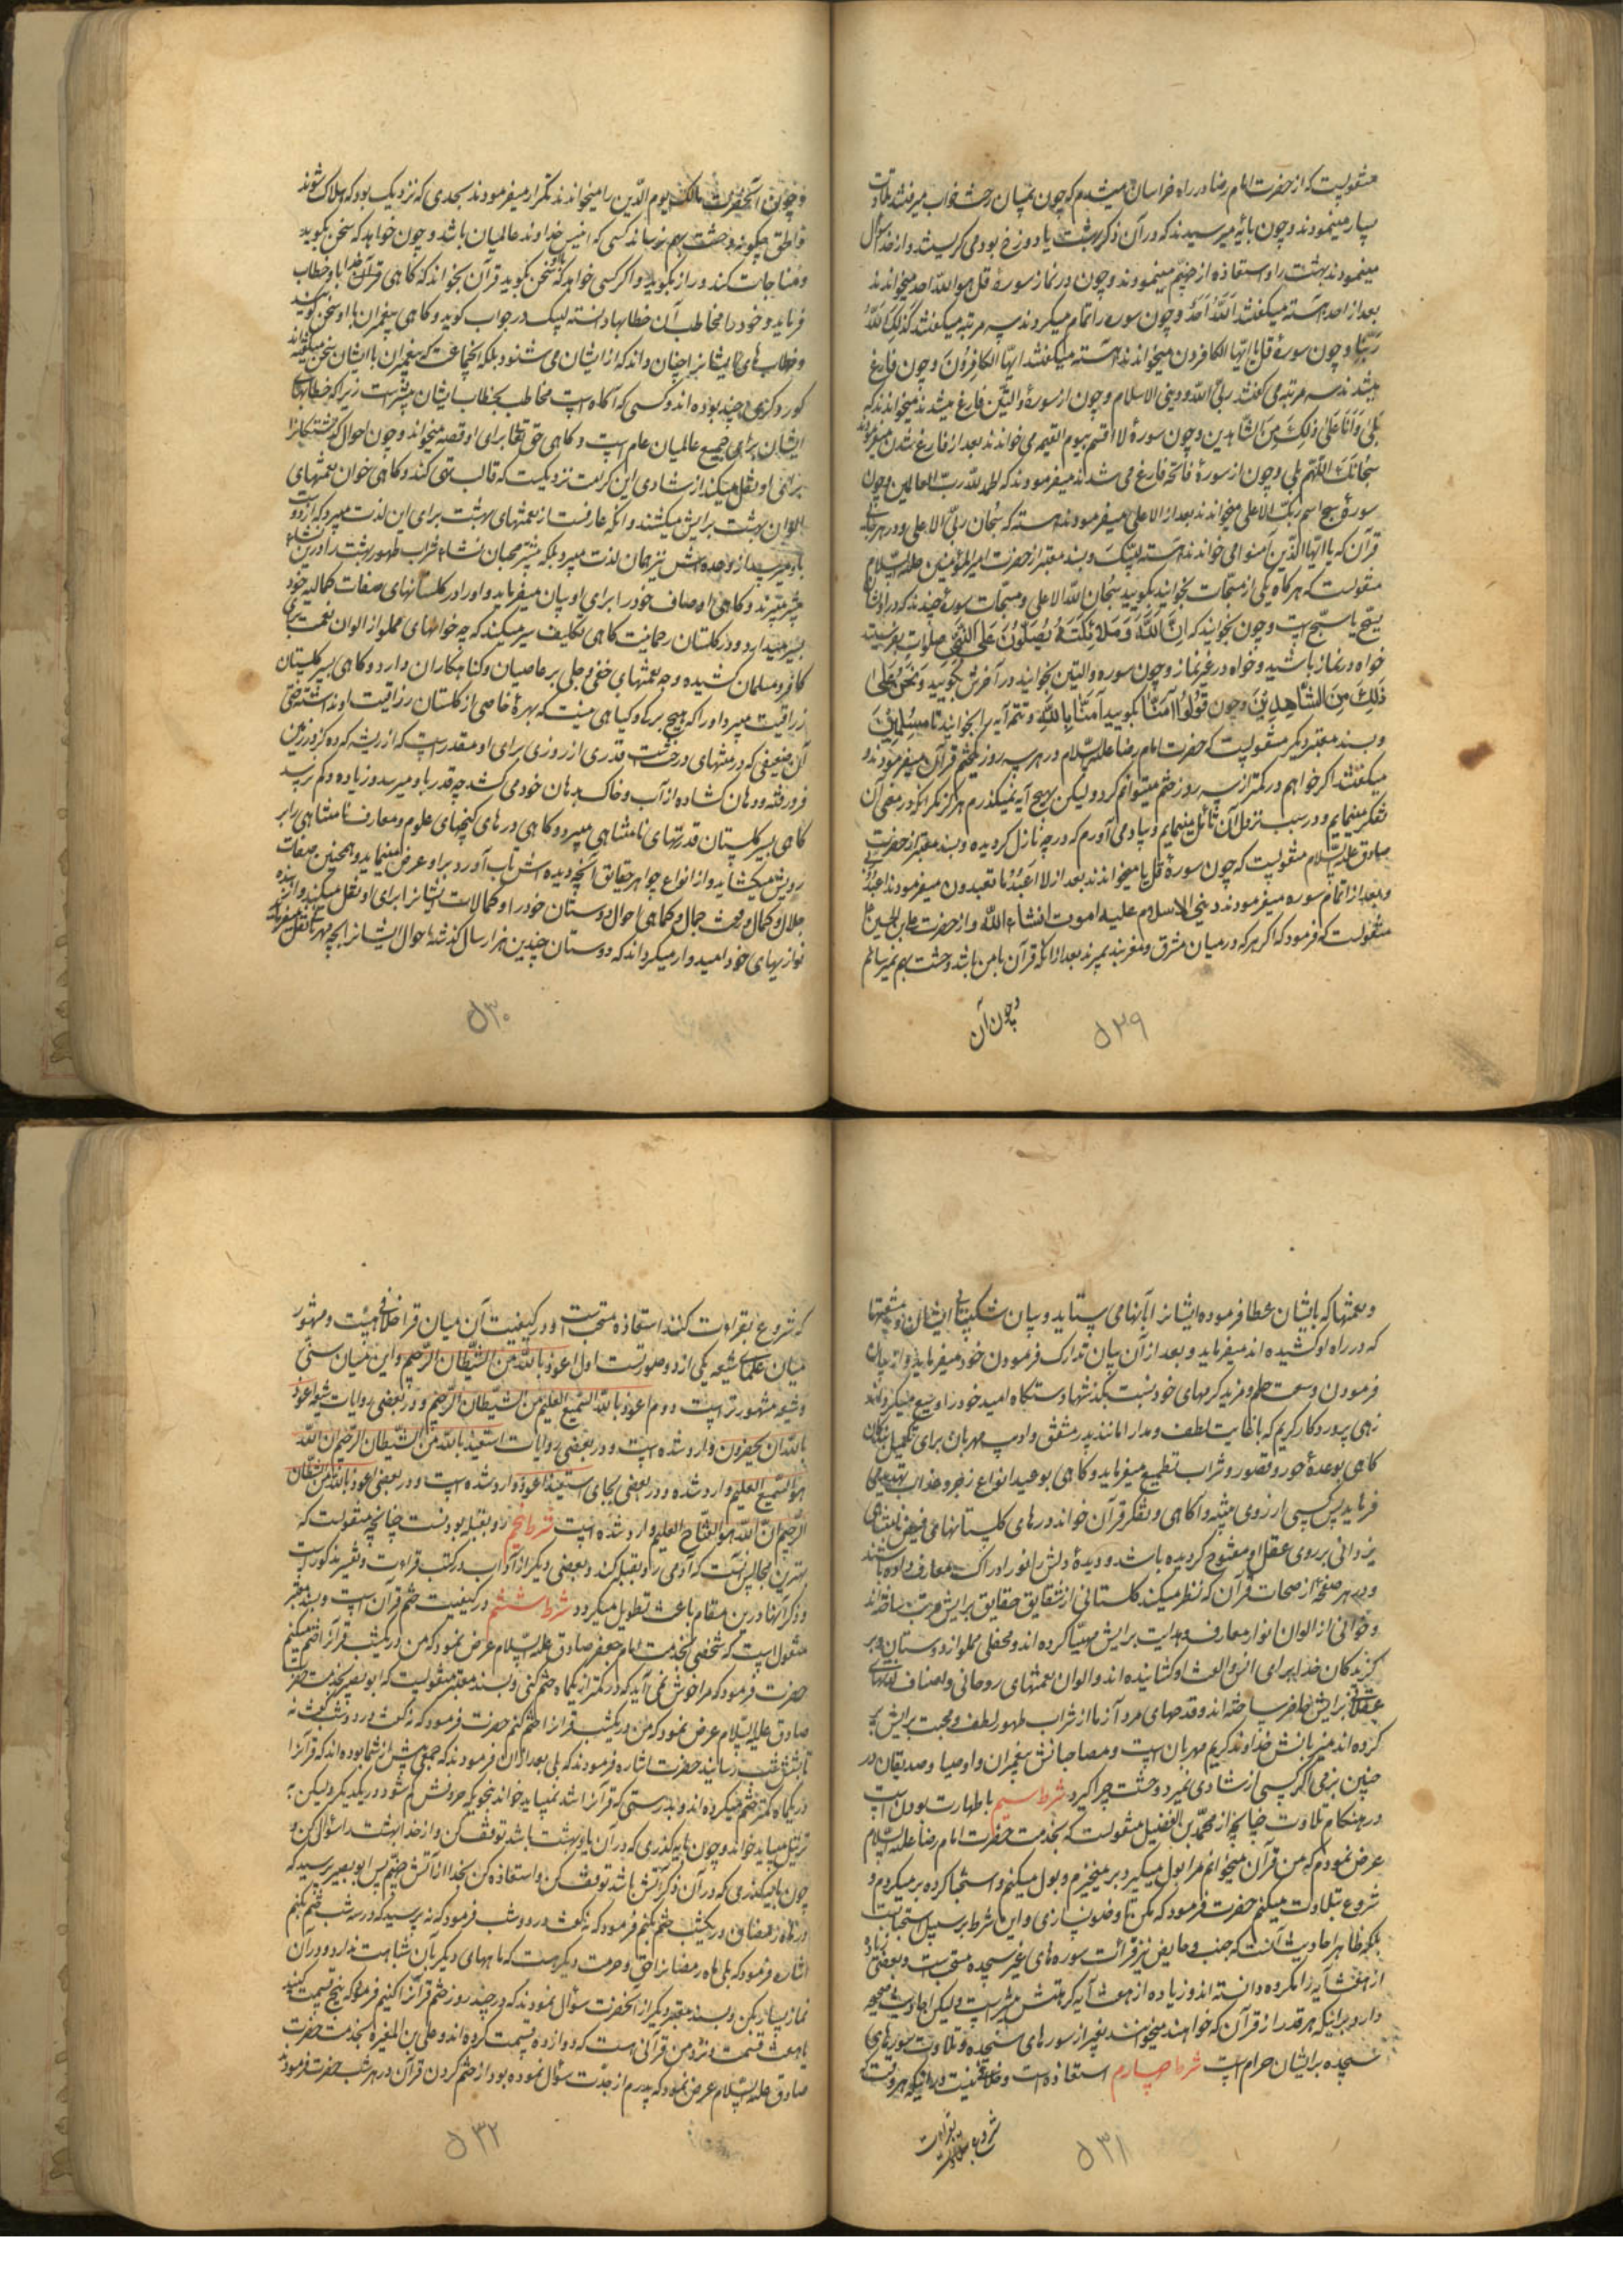 منقولست که از حضرت امام رضا در راه خراسان میشدم که چون بمیان رخت خواب میرفتند تلاوت
بسیار مینمودند و چون بآیهٔ میرسیدند که در آن ذکر بهشت یا دوزخ بود می گریستند و از خدا سؤال
مینمودند بهشت را و استعاذه از جهنّم مینمودند و چون در نماز سوره قل هو اللّه احد میخواندند
بعد از احد آهسته میگفتند اَللّهُ اَحَدٌ و چون سوره را تمام میکردند سه مرتبه میگفتند کَذلِکَ اللّهُ
رَبُّنا و چون سورهٔ قل یا ایّها الکافرون میخواندند آهسته میگفتند ایّها الکافِرُونَ و چون فارغ
میشدند سه مرتبه می گفتند ربّی اللّه و دینی الاسلام و چون از سورهٔ والتّین فارغ میشدند میخواندند که
بَلی وَاَنَا عَلی ذلِکَ مِنَ الشّاهدین و چون سورهٔ لا اقسم بیوم القیمه می خواندند بعد از فارغ شدن میفرمودند
سُبحانَکَ اللّهُمَّ بلی و چون از سورهٔ فاتحه فارغ می شدند میفرمودند که الحمد للّه ربّ العالمین و چون
سورهٔ سبح اسم ربّک الاعلی میخواندند بعد از الاعلی میفرمودند آهسته که سُبحان ربّی الاعلی و در هر جای
قرآن که یا ایّها الّذین آمنوا می خواندند آهسته لبّیک و بسند معتبر از حضرت امیر المؤمنین علیه السّلام
منقولست که هرگاه یکی از مسبّحات بخوانید بگویید سُبحان اللّه الاعلی و مسبّحات سورهٔ چندند که در اوّلشان
یسبّح یا سبّح است و چون بخوانید که اِنَّ اللّهَ وَ مَلائِکَتَهُ یُصَلُّونَ عَلَی النَّبِیِّ صلوات بفرستید
خواه در نماز باشید و خواه در غیر نماز و چون سوره والتین بخوانید در آخرش بگویید وَ نَحْنُ عَلی
ذلِکَ مِنَ الشّاهِدینَ و چون قُولُوا آمَنّا بگویید آمَنّا بِاللّهِ و تتمّه آیه را بخوانید تا مُسْلِمینَ
و بسند معتبر دیگر منقولست که حضرت امام رضا علیه السّلام در هر سه روز یکختم قرآن میفرمودند و
میگفتند اگر خواهم در کمتر از سه روز ختم میتوانم کرد و لیکن بهیچ آیه نمیگذرم هرگز مگر آنکه در معنی آن
تفکّر مینمایم و در سبب نزول آن تأمّل مینمایم و بیاد می آورم که در چه نازل گردیده و بسند معتبر از حضرت
صادق علیه السّلام منقولست که چون سورهٔ قل یا میخواندند بعد از لا اعبُدُ ما تعبدون میفرمودند اعبُدُ
و بعد از اتمام سوره میفرمودند دینی الاسلام علیه اموت انشاء اللّه و از حضرت علی بن الحسین
منقولست که فرمود که اگر هر که در میان مشرق و مغربند بمیرند بعد از آنکه قرآن با من باشد وحشت بهم نمیرسانم
و چون آن
۲۹
و چون آنحضرت مالک یوم الدّین را میخواندند مکرّر میفرمودند بحدی که نزدیک بود که هلاک شوند
و الحق چگونه وحشت بهم رساند کسی که انیس خداوند عالمیان باشد و چون خواهد که سخن بگوید
و مناجات کند و راز بگوید و اگر کسی خواهد که سخن بگوید قرآن بخواند که گاهی قرآن با او خطاب
فرماید و خود را مخاطب آن خطابها دانسته لبیک در جواب گوید و گاهی پیغمبران با او سخن گویند
و خطاب های ایشان را چنان داند که از ایشان می شنود بلکه آنجماعت که پیغمبران با ایشان سخن میگفتند
کور و کر چند بوده اند و کسی که آگاه است مخاطب بخطاب ایشان بیشتر است زیرا که خطابهای
ایشان برای جمیع عالمیان عام است و گاهی حق تعالی برای او قصه میخواند و چون احوال گذشتگان را
برای او نقل میکند از شادی این کرامت نزدیکست که قالب تهی کند و گاهی خوان نعمتهای
الوان بهشت برایش میکشند و آنکه عارفست از نعمتهای بهشت برای این لذت میبرد که از دوست
باو میرسد از وعده اش نیز همان لذت میبرد بلکه بیشتر محبان نشاء شراب طهور بهشت را در این نشاء
بیشتر میبرند و گاهی اوصاف خود را برای او بیان میفرماید و او را در گلستانهای صفات کمالیه خود
بسیر میدارد و در گلستان رحمانیت گاهی تکلیف سیر میکند که چه خوانهای مملو از الوان نعمت برای
کافر و مسلمان کشیده و چه نعمتهای خفی و جلی بر عاصیان و گناهکاران دارد و گاهی بسیر گلستان
رزاقیت میبرد او را که هیچ برگ و گیاهی نیست که بهره خاصی از گلستان رزاقیت او نداشته حتی
آن ضعیفی که در منتهای درخت قدری از روزی برای او مقدر است که از ریشه که در زمین
فرو رفته و دهان گشاده از آب و خاک بدهان خود می کشد چه قدر باو میرسد و زیاده و کم نرسد
گاهی بسیر گلستان قدرتهای نامتناهی میبرد و گاهی درهای گنجهای علوم و معارف نامتناهی را بر
رویش میگشاید و از انواع جواهر حقایق آنچه دیده اش تاب آورد بر او عرض مینماید و همچنین صفات
جلال و کمال و جمال و گاهی احوال دوستان خود را و کمالات ایشان را برای او نقل میکند و از
نوازیهای خود امیدوار میگرداند که دوستان چندین هزار سال گذشته احوال ایشان را بچه مهربانی نقل میفرماید
۳۰
و نعمتها که بایشان عطا فرموده ایشان را بآنها می ستاید و بیان شکیبائی ایشان و مشقتها
که در راه او کشیده اند میفرماید و بعد از آن بیان تدارک فرمودن خود میفرماید و از بیان
فرمودن وسعت حلم و مزید کرمهای خود نسبت بگذشتها دستگاه امید خود را وسیع میگرداند
زهی پروردگار کریم که با نهایت لطف و مدارا مانند پدر مشفق و ادیب مهربان برای تکمیل بندگان
گاهی بوعدهٔ حور و قصور و شراب تطمیع میفرماید و گاهی بوعید انواع زجر و عذاب تهدید می
فرماید پس کسی از روی تنبّه و آگاهی و تفکّر قرآن خواند درهای گلستانهای فیض نامتناهی
یزدانی بر روی عقل او مفتوح گردیده باشد و دیدهٔ دلش را نور ادراک معارف داده باشند
و در هر صفحه از صفحات قرآن که نظر میکند گلستانی از شقایق حقایق برایش مرتب ساخته اند
و خوانی از الوان انوار معارف و هدایت برایش مهیّا کرده اند و محفلی مملو از دوستان و بر
گزیدگان خدا برای انس و الفت او گشانیده اند و الوان نعمتهای روحانی و اصناف لذتهای
عقلانی برایش حاضر ساخته اند و قدحهای مرد آزما از شراب طهور لطف و محبت برایش پر
کرده اند میزبانش خداوند کریم مهربان است و مصاحبانش پیغمبران و اوصیا و صدیقان در
چنین بزمی اگر کسی از شادی نمیرد وحشت چرا گیرد شرط سیم با طهارت بودن است
در هنگام تلاوت چنانچه از محمّد بن الفضیل منقولست که بخدمت حضرت امام رضا علیه السّلام
عرض نمودم که من قرآن میخوانم مرا بول میگیرد بر میخیزم و بول میکنم و استنجا کرده بر میگردم و
شروع بتلاوت میکنم حضرت فرمود که مکن تا وضو نسازی و این شرط بر سبیل استحباب است
بلکه ظاهر احادیث آنست که جنب و حایض نیز قرائت سوره های غیر سجده مستحبست و بعضی زیاده
از هفت آیه را مکروه دانسته اند و زیاده از هفت آیه کراهتش بیشتر است و لیکن احادیث صحیحه
وارد بر اینکه هر قدر از قرآن که خواهند میخوانند بغیر از سوره های سجده و تلاوت سوره های
سجده بر ایشان حرام است شرط چهارم استعاذه است و خلاف نیست در اینکه هر وقت که
شروع بقراءت
۳۱
که شروع بقراءت کنند استعاذه مستحبّ است و در کیفیت آن میان قرا خلافی هست و مشهور
میان علمای شیعه یکی از دو صورتست اول اعوذ باللّه من الشّیطان الرّجیم و این میان سنّی
و شیعه مشهورتر است دوم اعوذ باللّه السّمیع العلیم من الشّیطان الرّجیم و در بعضی روایات شیعه اعوذ
باللّه ان یحضرون وارد شده است و در بعضی روایات استعیذ باللّه من الشّیطان الرّجیم ان اللّه
هو السّمیع العلیم وارد شده و در بعضی بجای استعیذ اعوذ وارد شده است و در بعضی اعوذ باللّه من الشّیطان
الرّجیم انّ اللّه هو الفتّاح العلیم وارد شده است شرط پنجم رو بقبله بودنست چنانچه منقولست که
بهترین مجالس آنست که آدمی رو بقبله کند و بعضی دیگر از آداب در کتب قراءت و تفسیر مذکور است
و ذکر آنها درین مقام باعث تطویل میگردد شرط ششم در کیفیت ختم قرآن است و بسند معتبر
منقول است که شخصی بخدمت امام جعفر صادق علیه السّلام عرض نمود که من در یکشب قرآن را ختم میکنم
حضرت فرمود که مرا خوش نمی آید که در کمتر از یکماه ختم کنی و بسند معتبر منقولست که ابو بصیر بخدمت حضرت
صادق علیه السّلام عرض نمود که من در یکشب قرآن را ختم کنم حضرت فرمود که نه گفت در دو شب گفت نه
تا بشش شب رسانید حضرت اشاره فرمودند که بلی بعد از آن فرمودند که جمعی پیش از شما بوده اند که قرآن را
در یکماه و کمتر ختم میکرده اند و بدرستی که قرآن را تند نمیباید خواند بنحویکه حروفش گم شود در یکدیگر و لیکن به
ترتیل میباید خواند و چون بآیه گذری که در آن یاد بهشت باشد توقف کن و از خدا بهشت را سؤال کن و
چون بآیه گذری که در آن ذکر آتش باشد توقف کن و استعاذه کن بخدا از آتش جهنّم پس ابو بصیر پرسید که
در ماه رمضان در یکشب ختم بکنم فرمود که نه گفت در دو شب فرمود که نه پرسید که در سه شب ختم بکنم
اشاره فرمود که بلی ماه رمضان را حقی و حرمت دیگر هست که ماههای دیگر بآن شباهت ندارد و در آن
نماز بسیار بکن و بسند معتبر دیگر از آنحضرت سؤال نمودند که در چند روز ختم قرآن را کنیم فرمود که پنج قسمت کنید
یا هفت قسمت و نزد من قرآنی هست که دوازده قسمت کرده اند و علی بن المغیره بخدمت حضرت
صادق علیه السّلام عرض نمود که پدرم از جدّت سؤال نموده بود از ختم کردن قرآن در هر شب حضرت فرمود
۳۲